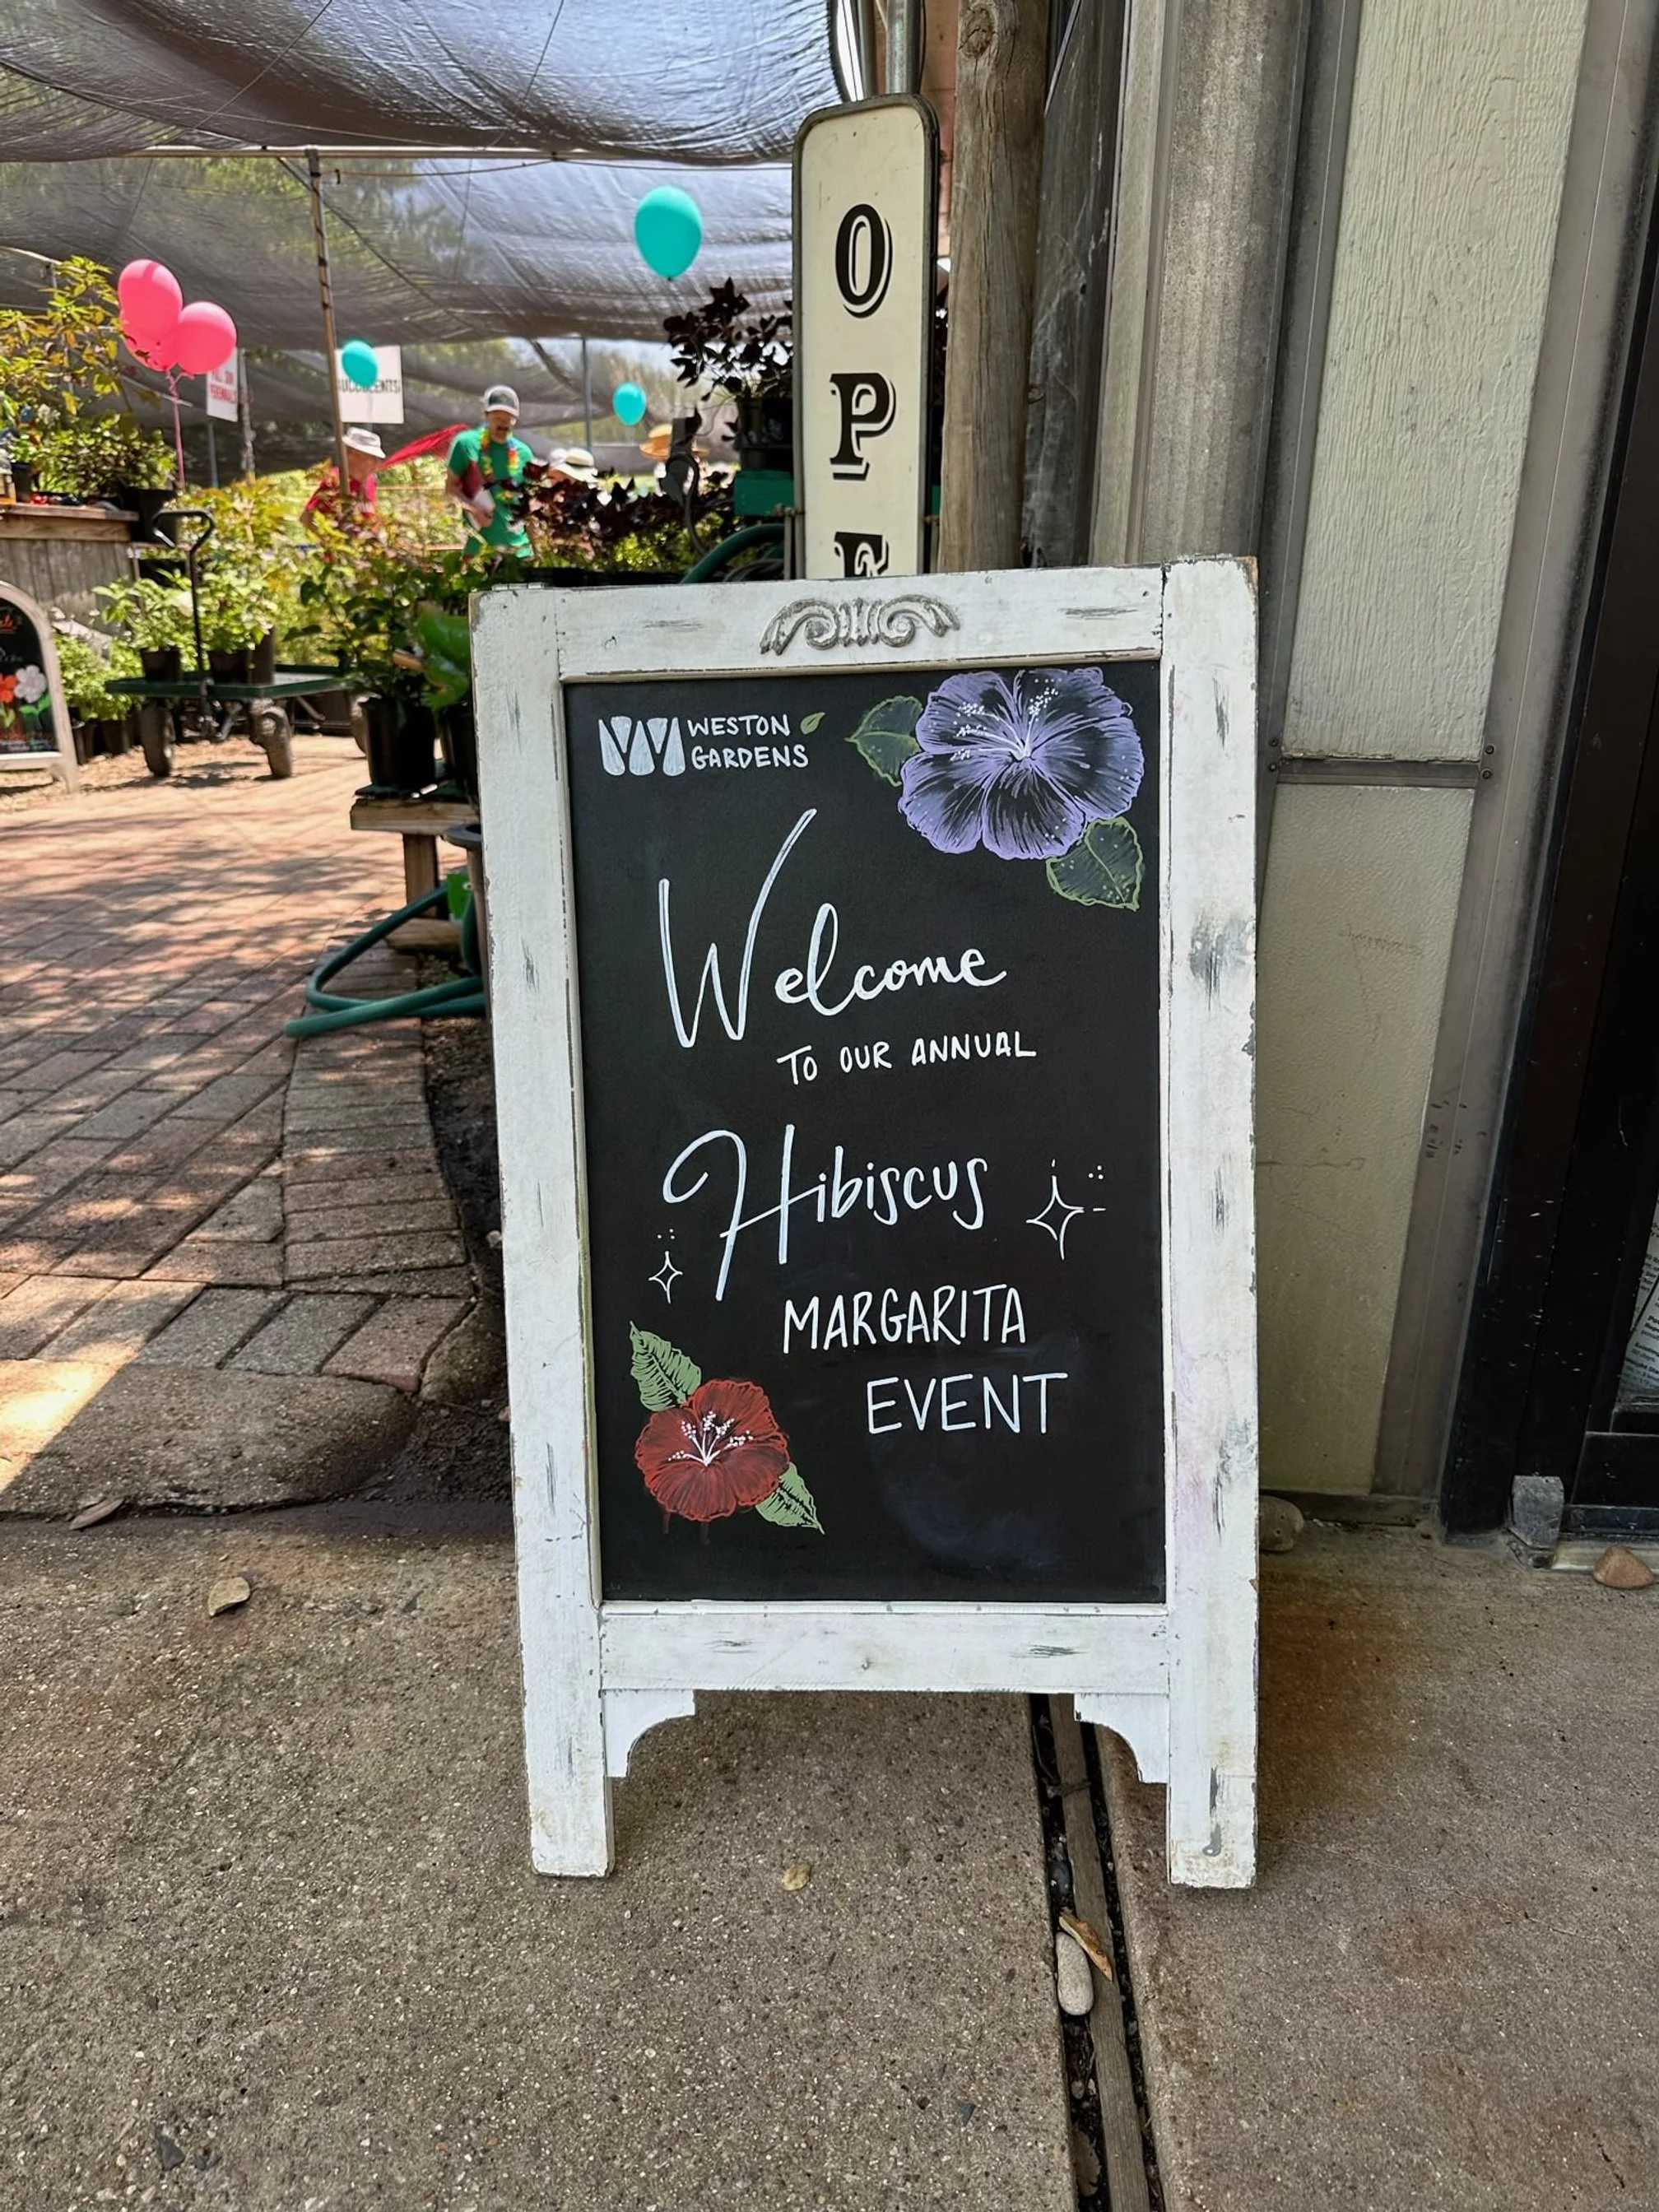 OPE
SUCCULENTS
WESTON
GARDENS
Welcome
TO OUR ANNUAL
Hibiscus
MARGARITA
EVENT